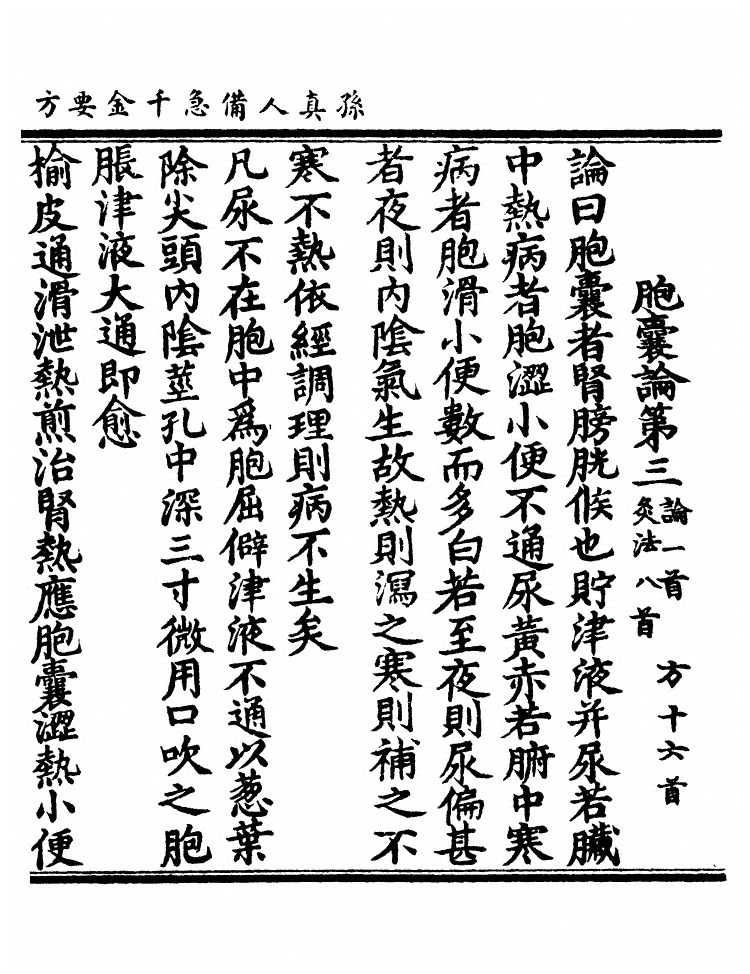 孫真人備急千金要方
胞囊論第三 論一首 方十六首
灸法八首
論曰胞囊者腎膀胱候也貯津液并尿若臟
中熱病者胞澀小便不通尿黃赤若腑中寒
病者胞滑小便數而多白若至夜則尿偏甚
者夜則內陰氣生故熱則瀉之寒則補之不
寒不熱依經調理則病不生矣
凡尿不在胞中爲胞屈僻津液不通以葱葉
除尖頭內陰莖孔中深三寸微用口吹之胞
脹津液大通即愈
榆皮通滑泄熱煎治腎熱應胞囊澀熱小便